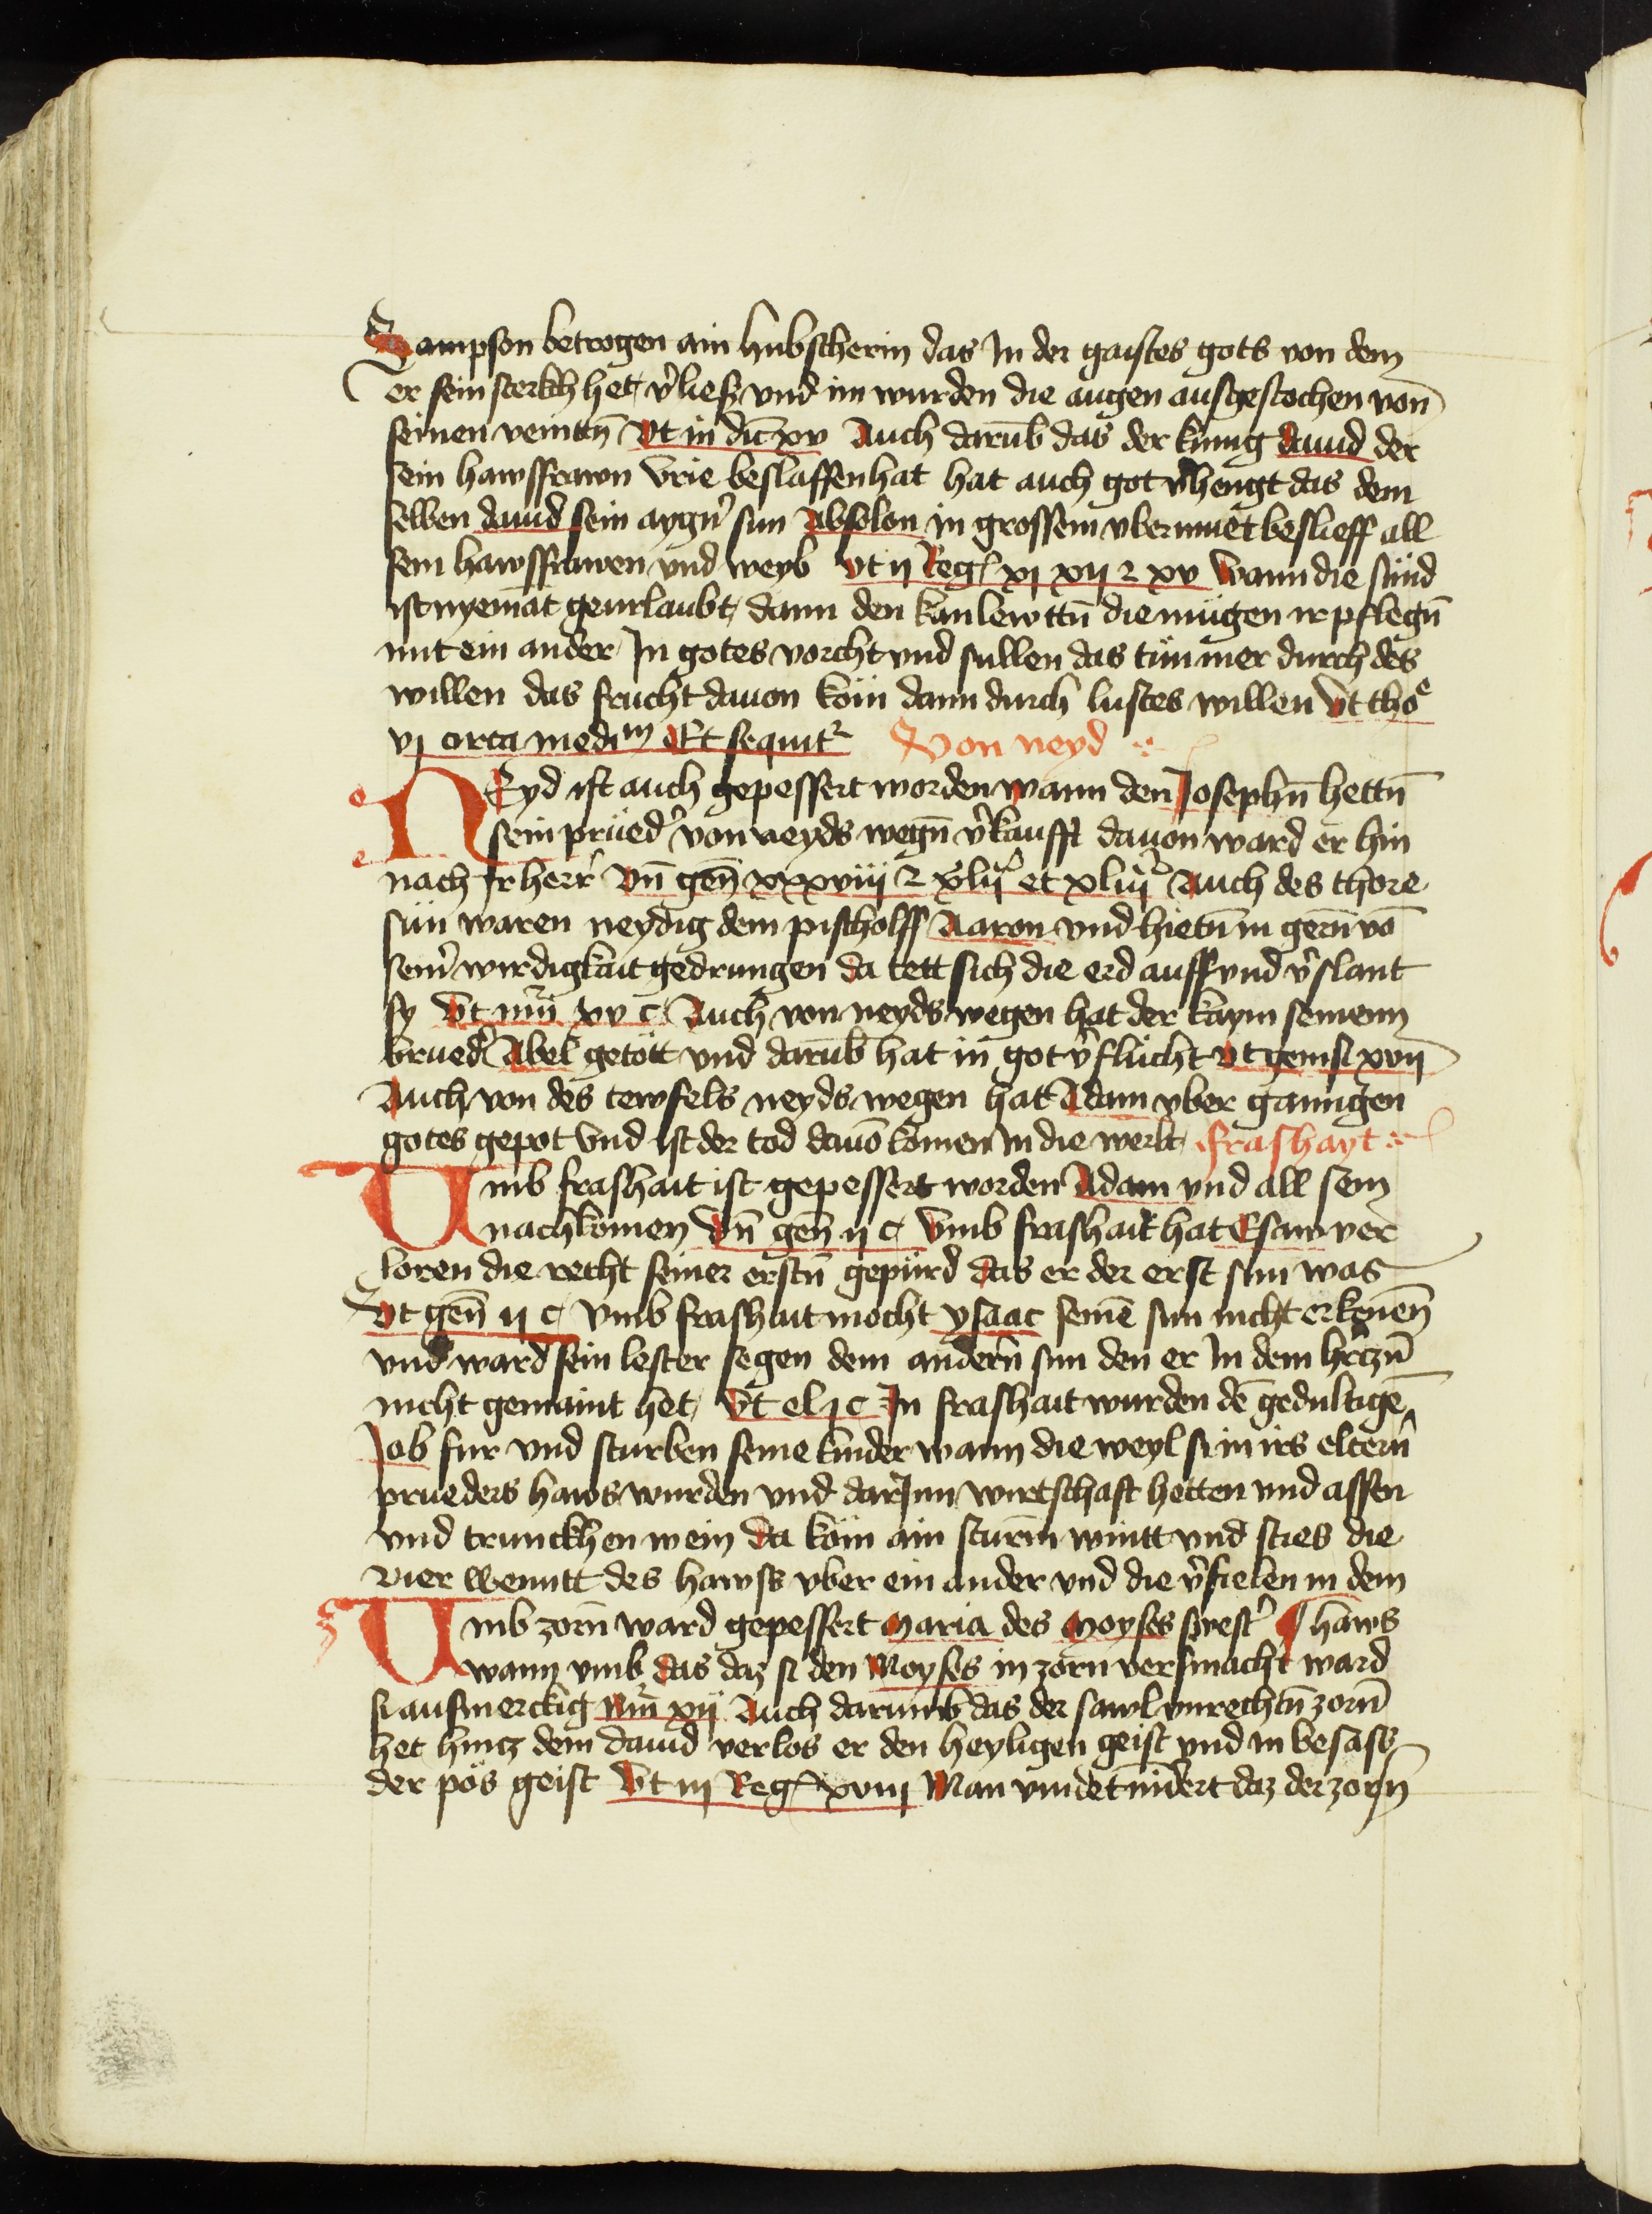 Sampson betrogen ain hubscherin das In der gaistes gots von dem
er sein sterkch het v̾ließ vnd im wurden die augen ausgestochen von
seinen veintn̄ Vt in dic̄ xv Auch darūb das der künig dauid der
sein hawsfrawn Vrie beslaffen hat hat auch got v̾hengt das dem
selben dauid sein aygn̾ sun Absolon in grossem vbermuet beslieff all
sein hawsfrawen vnd weyb vt ij Reg͛ xj xij ⁊ xv Wann die sünd
ist nyemāt geurlaubt dann den kanlewttn̄ die mügen ir pflegn̄
mit ein ander In gotes vorcht vnd sullen das tün mer durch des
willen das frucht dauon köm dann durch lustes willen Vt thoᵉ
vj circa mediᵐ Et sequit² Von neyd
NEyd ist auch gepessert worden wann den Josephn̄ hettn̄
sein prüed̾ von neyds wegn̄ v̾kaufft dauon ward er hin
nach Ir herr̾ Vn̄ gen̄ xxxviij ⁊ xlij̾ et xliij̾ Auch des thore
sün waren neydig dem pischolff Aaron vnd hietn̄ in gern̄ vō
sein̾ wirdigkait gedrungen da tett sich die erd auff vnd v̾slant
sy Vt nūi xv c Auch von neyds wegen hat der kaym seinenn
brued̾ Abel getött vnd darūb hat in got v̾flücht Vt genesi xvij
Auch von des tewfels neyds wegen hat Adam vber ganngen
gotes gepot Vnd ist der tod dauō komen In die werlt frashayt
Vmb frashait ist gepessert worden Adam vnd all sein
nachkomen Vn̄ gen̄ ij c Vmb frashait hat Esaw ver
loren die recht seiner erstn̄ gepürd das er der erst sun was
Vt gen̄ ij c Vmb frashait mocht ysaac seinē sun nicht erkenēn
vnd ward sein lester segen dem andern̄ sun den er In dem hr̾czn̄
nicht gemaint het Vt el j c In frashait wurden dē gedultigē
Job fur vnd sturben seine kinder wann die weyl si in irs eltern̄
prueders haws wurden vnd darjnn wirtschaft hetten vnd assen
vnd trunckhen wein da köm ain sturm̄ wintt vnd sties die
vier wenntt des hawss vber ein ander vnd die v̾fielen in dem
Vmb zorn̄ ward gepessert Maria des Moyses swest̾ ¶ haws
wann vmb das daz si den Moyses in zorn versmacht ward
si ausmerckig Nūi xij Auch darumb das der sawl vnrechtn̄ zorn̄
het hincz dem dauid verlos er den heyligen geist vnd in besass
der pös geist Vt iij Reg͛ xviij Man vindet midert daz der zorn̄